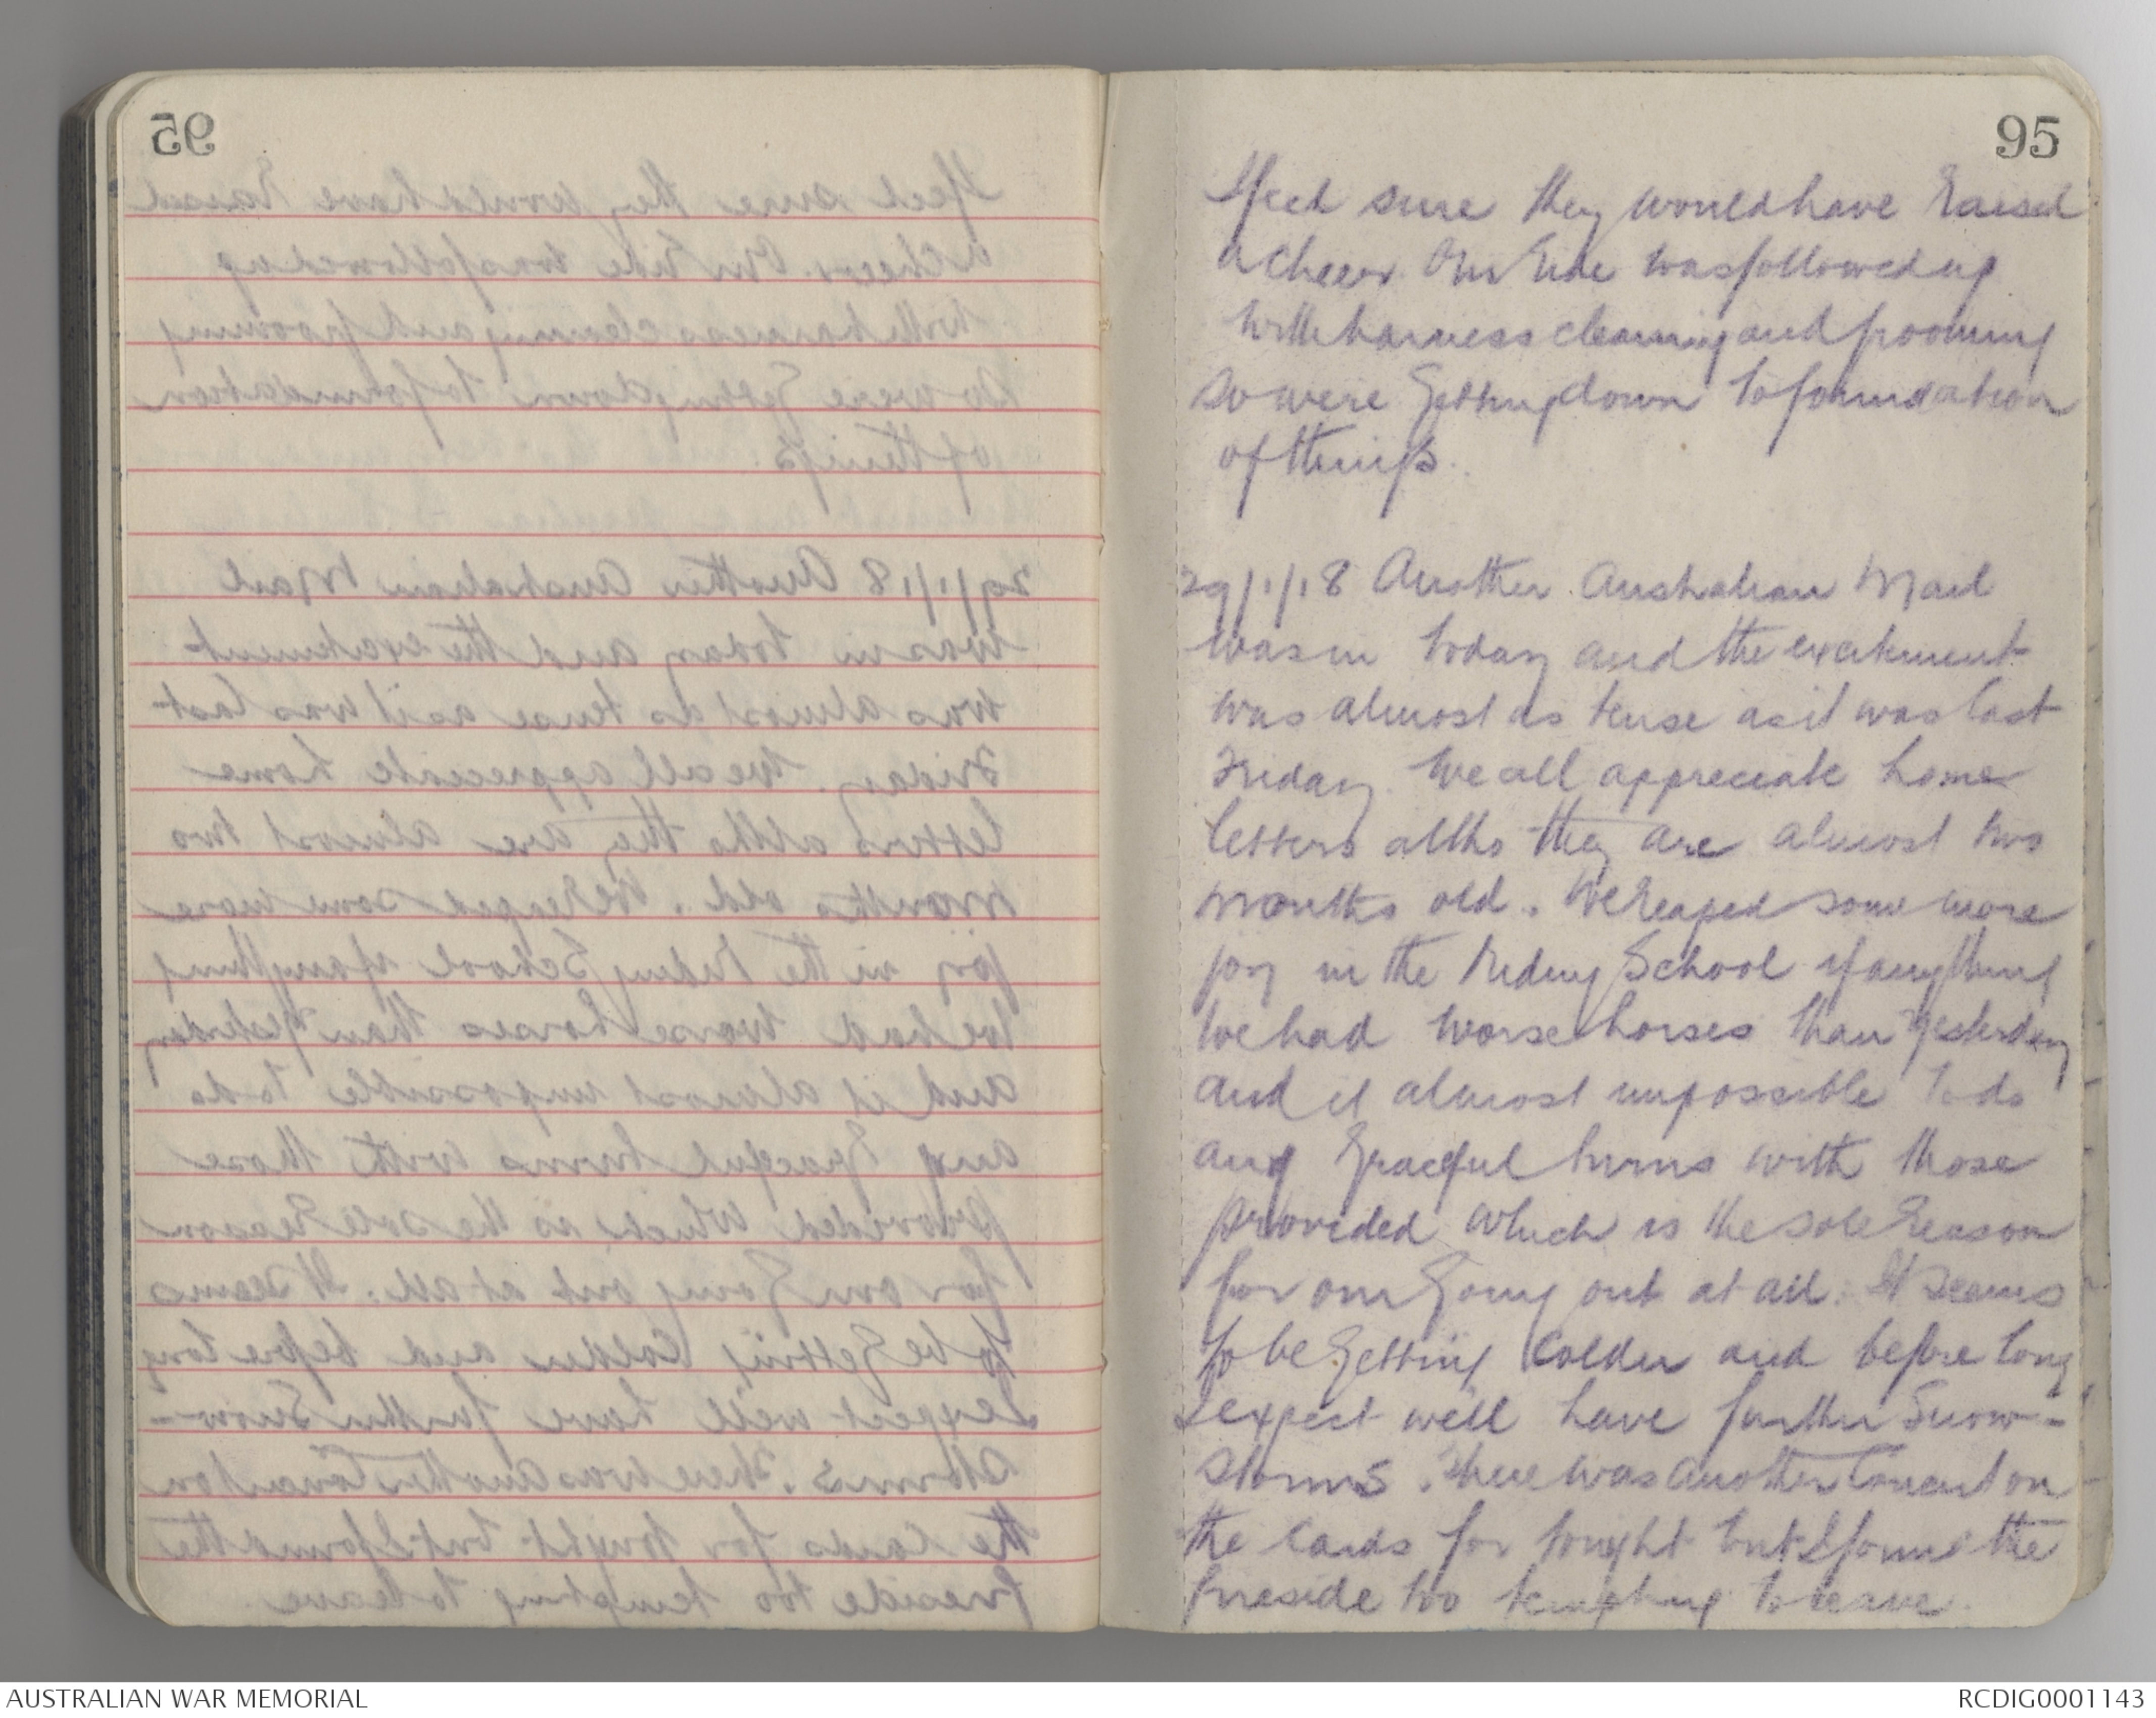 95
I feel sure they would have raised
a cheer. Our ride was followed up
with harness cleaning and grooming
so were getting down to foundation
of things.
29/1/18 Another Australian Mail
was in today and the excitement
was almost as tense as it was last
Friday. We all appreciate home
letters altho they are almost two
months old. We reaped some more
joy in the Riding School if anything
we had worse horses than yesterday
and it almost impossible to do
any graceful turns with those
provided which is the sole reason
for our going out at all. It seems
to be getting colder and before long
I expect we'll have further Snow-
storms. There was another Concert on
the cards for tonight but I found the
fireside too tempting to leave.
AUSTRALIAN WAR MEMORIAL
RCDIG0001143